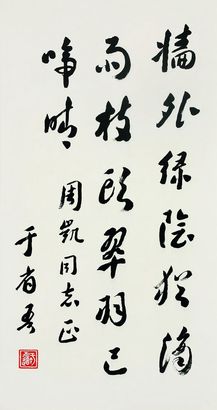 墙外绿阴犹滴
雨枝头翠羽已
啼晴
周凯同志正
于省吾